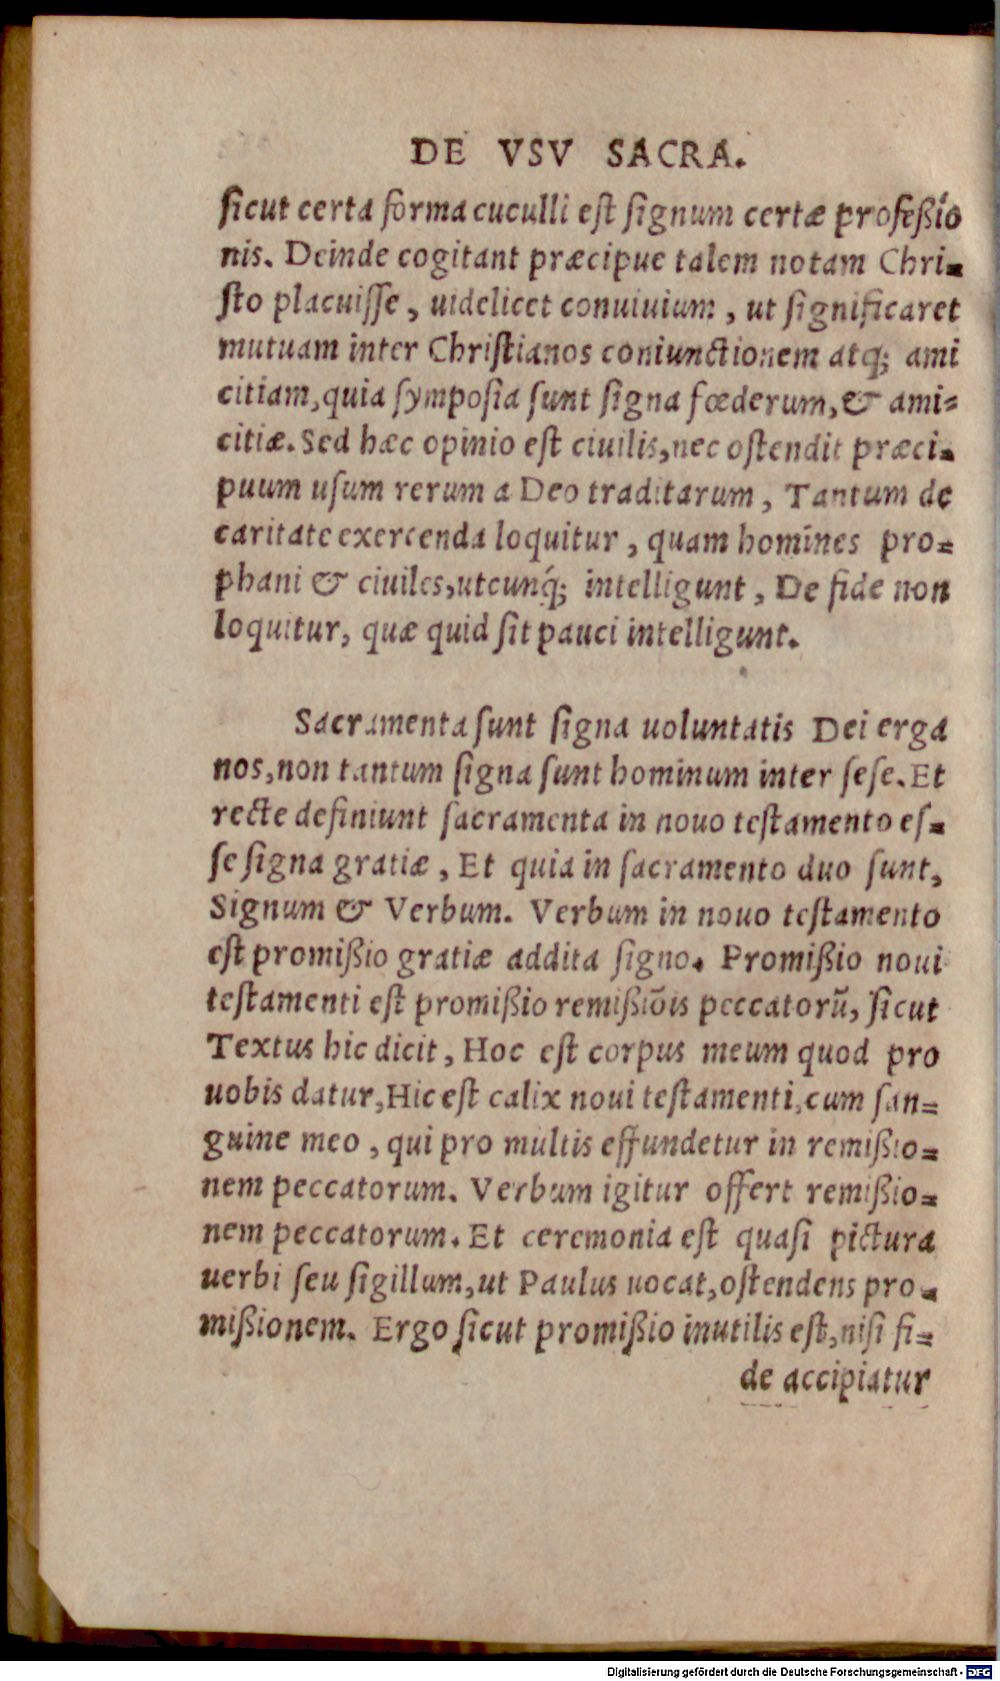 DE VSV SACRA.
ſicut certa forma cuculli eſt ſignum certæ profeßió
nis. Deinde cogitant præcipue talem notam Chri-
ſto placuiſſe, uidelicet conuiuium, ut ſignificaret
mutuam inter Chriſtianos coniunctionem atq; ami
citiam, quia ſympoſia ſunt ſigna fœderum, & ami=
citiæ. Sed hæc opinio eſt ciuilis, nec oſtendit præci-
puum uſum rerum a Deo traditarum, Tantum de
caritate exercenda loquitur, quam homines pro=
phani & ciuiles, utcunq́; intelligunt, De fide non
loquitur, quæ quid ſit pauci intelligunt.
Sacramenta ſunt ſigna uoluntatis Dei erga
nos, non tantum ſigna ſunt hominum inter ſeſe. Et
recte definiunt ſacramenta in nouo teſtamento eſ-
ſe ſigna gratiæ, Et quia in ſacramento duo ſunt,
Signum & Verbum. Verbum in nouo teſtamento
eſt promißio gratiæ addita ſigno. Promißio noui
teſtamenti eſt promißio remißiōis peccatorū, ſicut
Textus hic dicit, Hoc eſt corpus meum quod pro
uobis datur, Hic eſt calix noui teſtamenti, cum ſan=
guine meo, qui pro multis effundetur in remißio=
nem peccatorum. Verbum igitur offert remißio=
nem peccatorum. Et ceremonia eſt quaſi pictura
uerbi ſeu ſigillum, ut Paulus uocat, oſtendens pro-
mißionem. Ergo ſicut promißio inutilis eſt, niſi fi=
de accipiatur
Digitalisierung gefördert durch die Deutsche Forschungsgemeinschaft - DFG